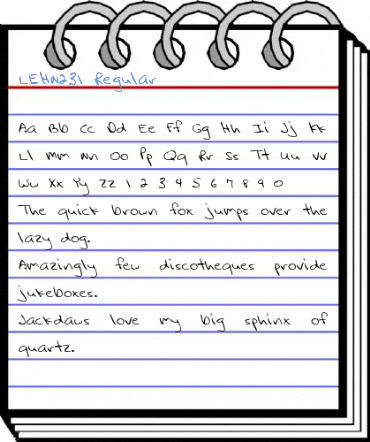 LEHN231 Regular
Aa Bb Cc Dd Ee Ff Gg Hh Ii Jj Kk
Ll Mm Nn Oo Pp Qq Rr Ss Tt Uu Vv
Ww Xx Yy Zz 1 2 3 4 5 6 7 8 9 0
The quick brown fox jumps over the
lazy dog.
Amazingly few discotheques provide
jukeboxes.
Jackdaws love my big sphinx of
quartz.